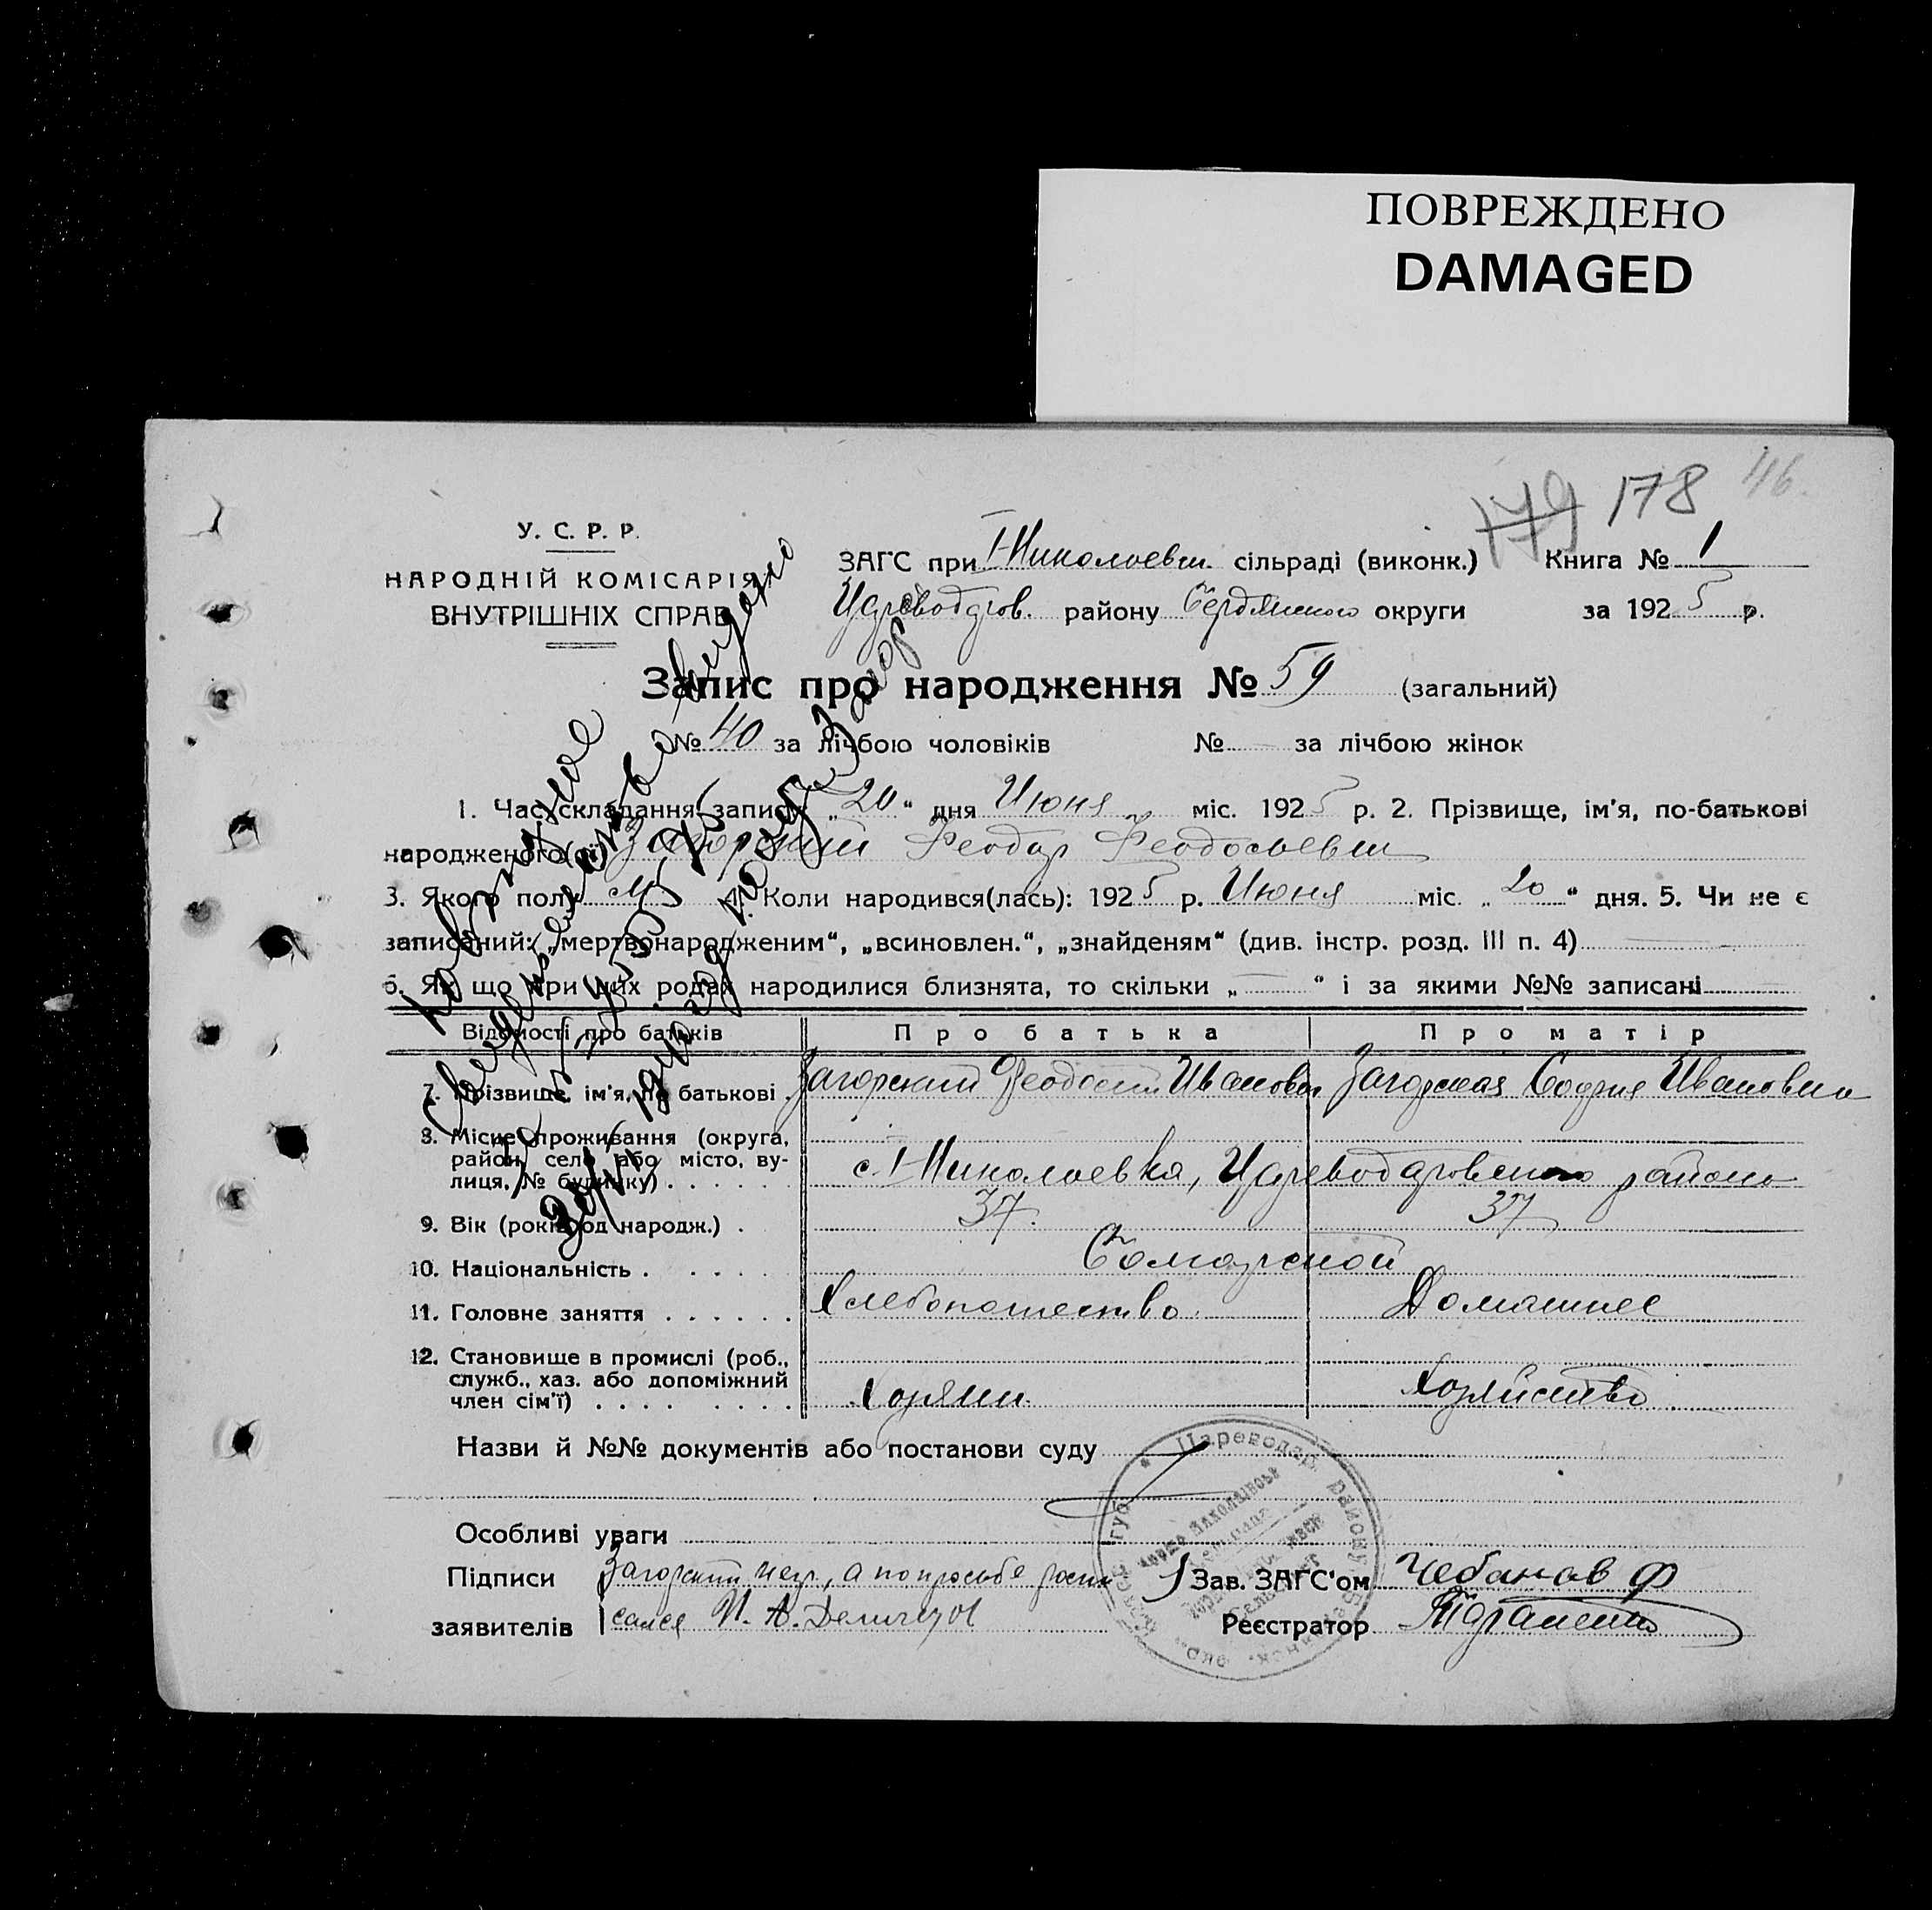 ПОВРЕЖДЕНО
DAMAGED
179 178 46.
У. С. Р. Р.
НАРОДНІЙ КОМІСАРІЯТ
ВНУТРІШНІХ СПРАВ
ЗАГС при I-Николаевск. сільраді (виконк.) Книга № 1
Цареводаров. району Бердянского округи за 1925 р.
Запис про народження № 59 (загальний)
№ 40 за лічбою чоловіків № — за лічбою жінок
1. Час складання запису „20“ дня Июня міс. 1925 р. 2. Прізвище, ім'я, по-батькові
народженого(ої) Загорский Феодор Феодосьевич
3. Якого полу м 4. Коли народився(лась): 1925 р. Июня міс. „20“ дня. 5. Чи не є
записаний: „мертвонародженим“, „всиновлен.“, „знайденям“ (див. інстр. розд. III п. 4)
6. Як що при цих родах народилися близнята, то скільки „—“ і за якими №№ записані
Відомості про батьків Про батька Про матір
7. Прізвище, ім'я, по батькові Загорский Феодосий Иванович Загорская София Ивановна
8. Місце проживання (округа,
район, село або місто, ву-
лиця, № будинку) с. I-Николаевка, Цареводаровского района
9. Вік (років од народж.) 37. 37
10. Національність Болгарской
11. Головне заняття Хлебопашество Домашнее
12. Становище в промислі (роб.,
служб., хаз. або допоміжний
член сім'ї) Хозяин Хозяйство
Назви й №№ документів або постанови суду
Особливі уваги
Підписи Загорский негр., а по просьбе распи
заявителів сался И. А. Делигеоз
Зав. ЗАГС'ом Чебанов Ф
Реєстратор
Цареводар. району Бердянськ. окр.